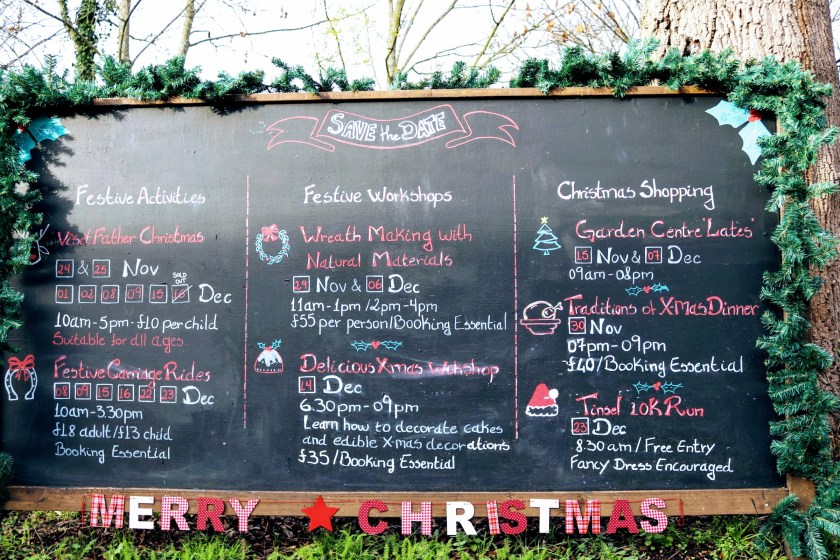 SAVE the DATE
Festive Activities
Visit Father Christmas
24 & 25 Nov
SOLD OUT
01 02 08 09 15 16 Dec
10am-5pm-£10 per child
Suitable for all ages
Festive Carriage Rides
08 09 15 16 22 23 Dec
10am-3.30pm
£18 adult/£13 child
Booking Essential
Festive Workshops
Wreath Making with
Natural Materials
29 Nov & 06 Dec
11am-1pm/2pm-4pm
£55 per person/Booking Essential
Delicious Xmas Wokshop
14 Dec
6.30pm-09pm
Learn how to decorate cakes
and edible Xmas decorations
£35/Booking Essential
Christmas Shopping
Garden Centre 'Lates'
15 Nov & 07 Dec
09am-08pm
Traditions of X-Mas Dinner
30 Nov
07pm-09pm
£40/Booking Essential
Tinsel 10K Run
23 Dec
8.30am/Free Entry
Fancy Dress Encouraged
MERRY CHRISTMAS